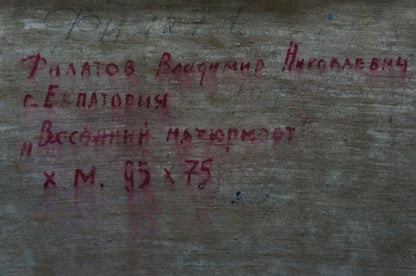 Филатов
Филатов Владимир Николаевич
г. Евпатория
„Весенний натюрморт"
х. м. 95 х 75